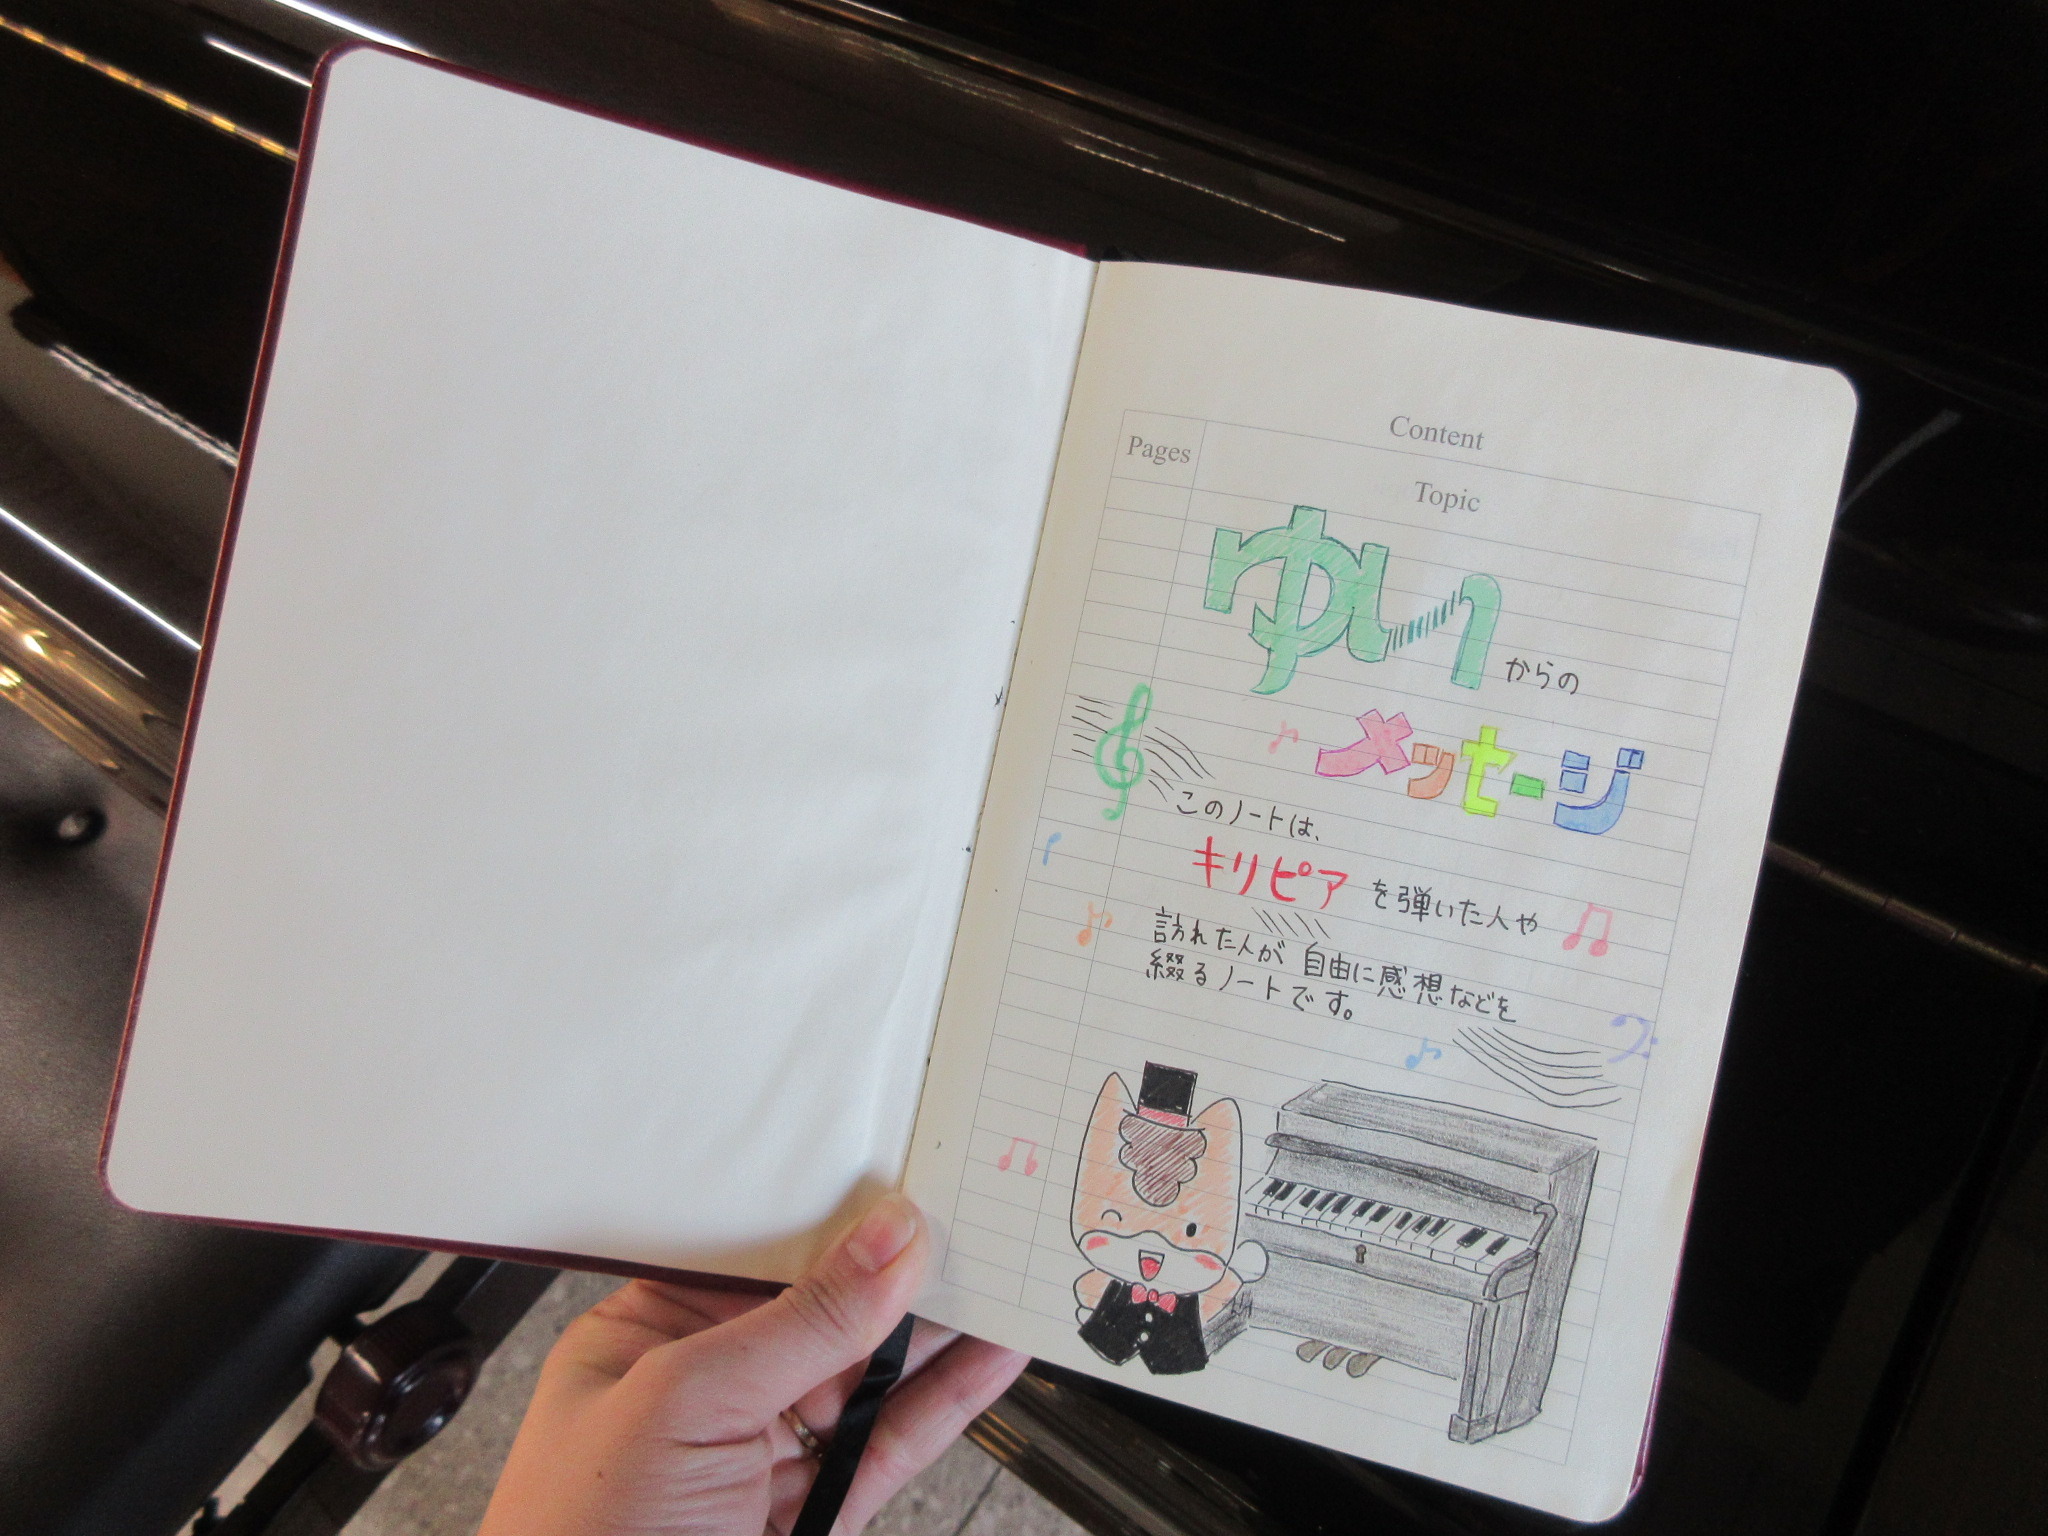 Content
Pages
Topic
ゆいからの
メッセージ
このノートは、
キリピアを弾いた人や
訪れた人が自由に感想などを
綴るノートです。